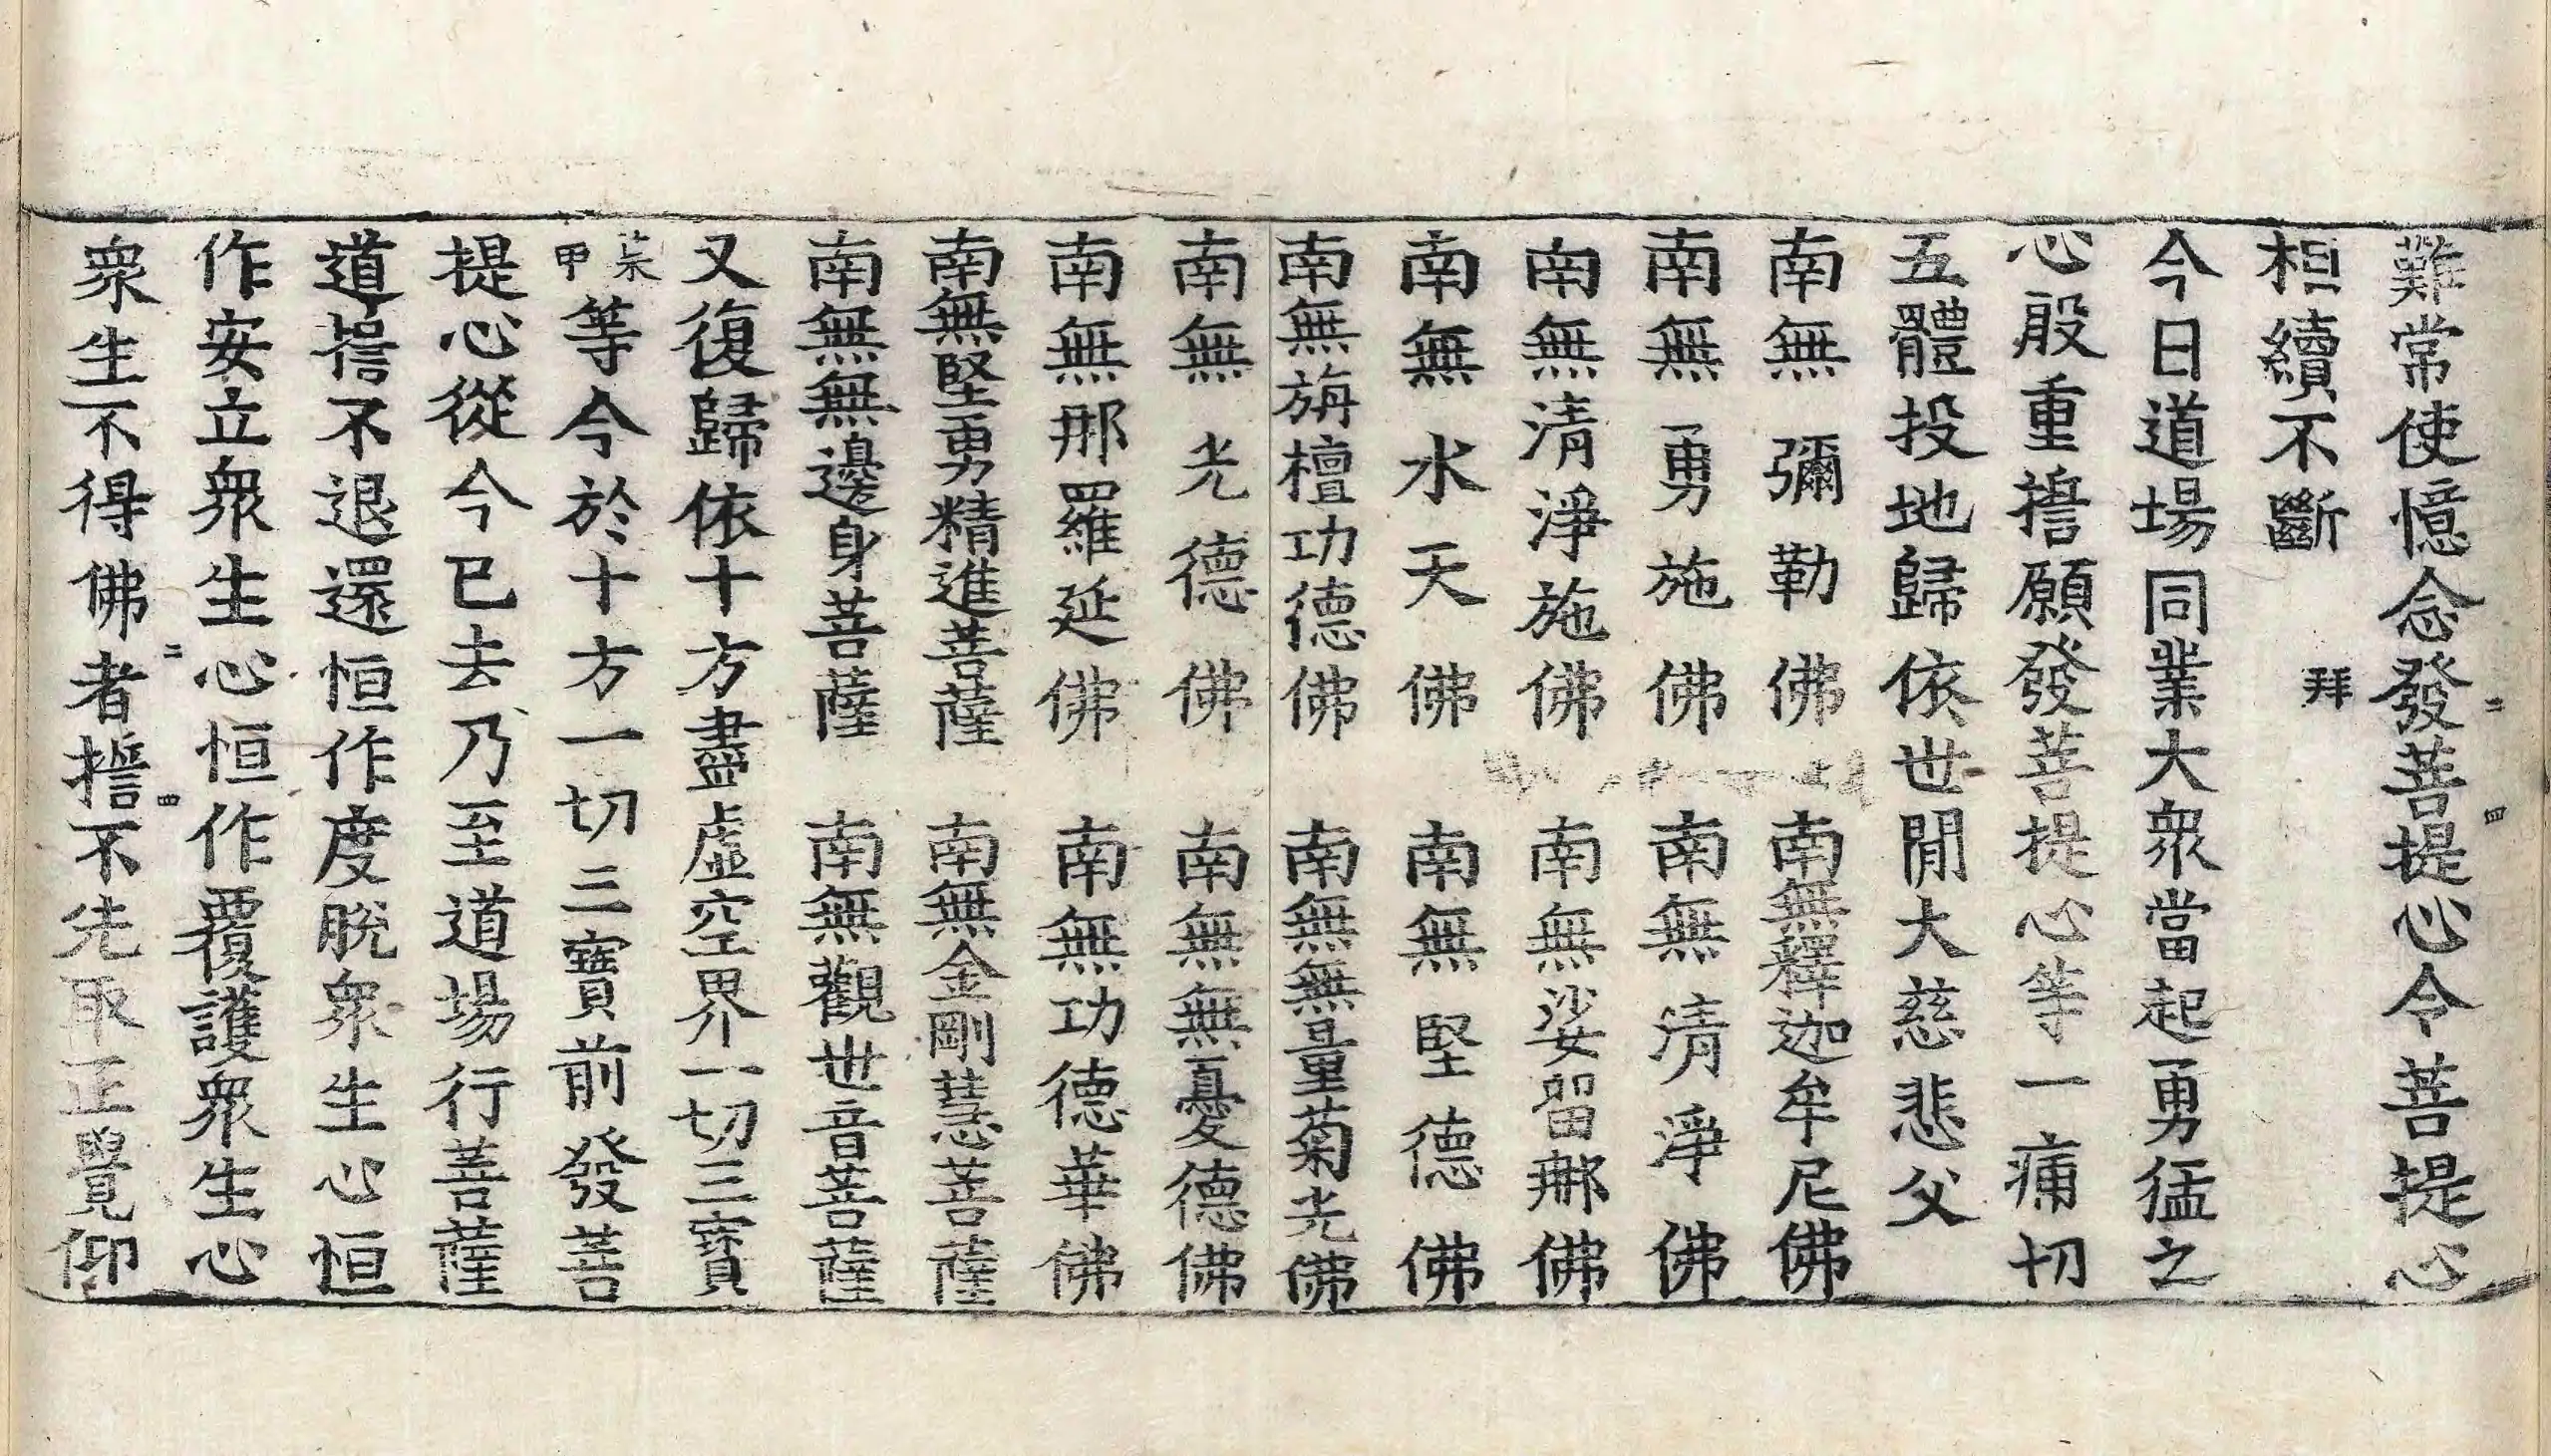 難常使憶念發菩提心令菩提心
二 四
相續不斷 拜
今日道場同業大衆當起勇猛之
心殷重誓願發菩提心等一痛切
五體投地歸依世間大慈悲父
南無彌勒佛 南無釋迦牟尼佛
南無勇施佛 南無清淨佛
南無清淨施佛 南無娑留那佛
南無水天佛 南無堅德佛
南無旃檀功德佛 南無無量菊光佛
南無光德佛 南無無憂德佛
南無那羅延佛 南無功德華佛
南無堅勇精進菩薩 南無金剛慧菩薩
南無無邊身菩薩 南無觀世音菩薩
又復歸依十方盡虛空界一切三寶
某甲等今於十方一切三寶前發菩
提心從今已去乃至道場行菩薩
道誓不退還恒作度脫衆生心恒
作安立衆生心恒作覆護衆生心
二 四
衆生不得佛者誓不先取正覺仰